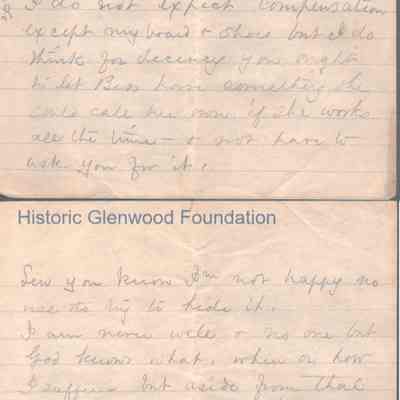 I do not expect compensation
except my board & shoes but I do
think for decency you ought
to let Bess have something she
could call her own if she works
all the time - & not have to
ask you for it.
Historic Glenwood Foundation
Lew you know I'm not happy no
use to try to hide it.
I am never well & no one but
God knows what, when or how
I suffer but aside from that